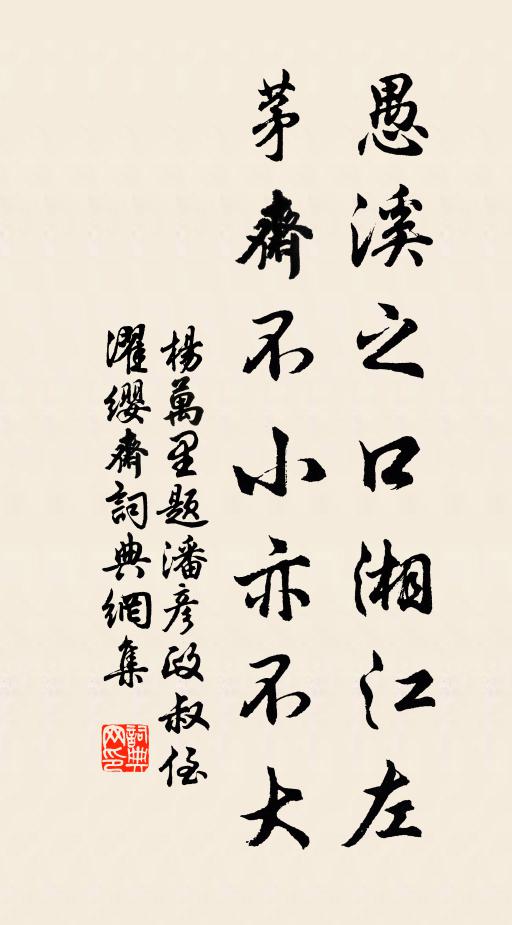 愚溪之口湘江左
茅齋不小亦不大
楊萬里題潘彥政叔侄
濯纓齋詞典網集
詞典
网印